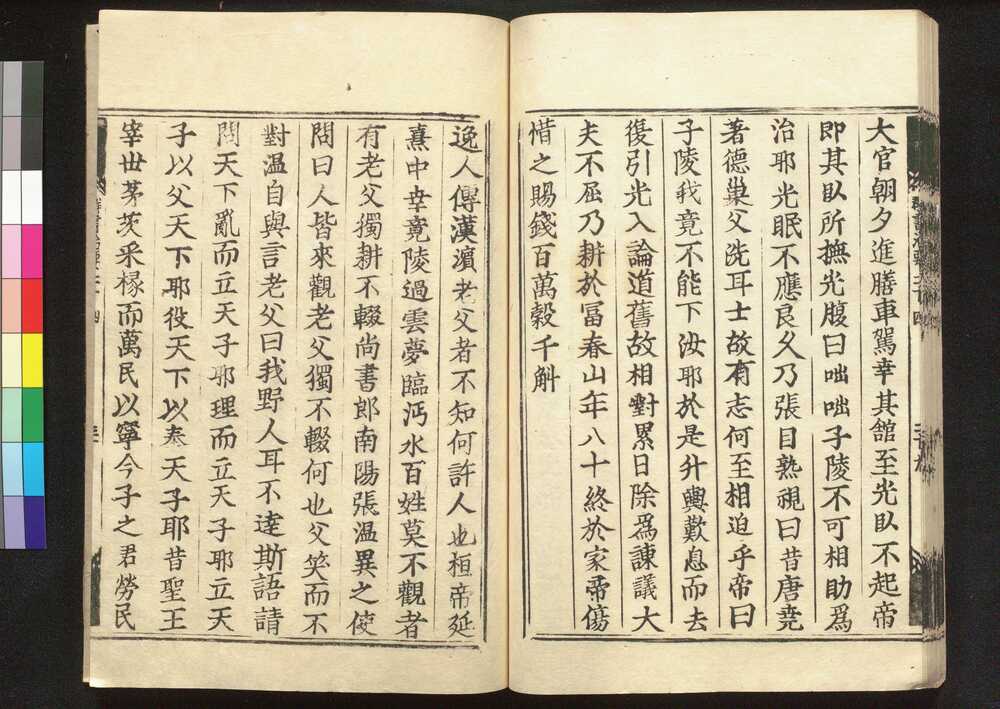 大官朝夕進膳車駕幸其館至光臥不起帝
即其臥所撫光腹曰咄咄子陵不可相助爲
治耶光眠不應良久乃張目熟視曰昔唐堯
著德巢父洗耳士故有志何至相迫乎帝曰
子陵我竟不能下汝耶於是升輿歎息而去
復引光入論道舊故相對累日除爲諫議大
夫不屈乃耕於冨春山年八十終於家帝傷
惜之賜錢百萬穀千斛
逸人傳漢濱老父者不知何許人也桓帝延
熹中幸竟陵過雲夢臨沔水百姓莫不觀者
有老父獨耕不輟尚書郎南陽張温異之使
問曰人皆來觀老父獨不輟何也父笑而不
對温自與言老父曰我野人耳不達斯語請
問天下亂而立天子耶理而立天子耶立天
子以父天下耶役天下以奉天子耶昔聖王
宰世茅茨采椽而萬民以寧今子之君勞民